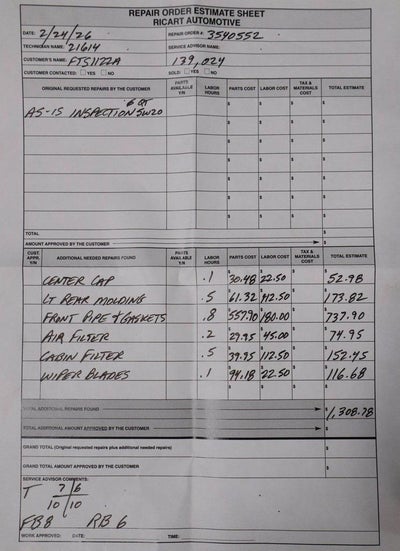 REPAIR ORDER ESTIMATE SHEET
RICART AUTOMOTIVE
DATE: 2/24/26 REPAIR ORDER #: 3540552
TECHNICIAN NAME: 21614 SERVICE ADVISOR NAME:
CUSTOMER'S NAME: FTS1122A 139,024
CUSTOMER CONTACTED: YES NO SOLD: YES NO
ORIGINAL REQUESTED REPAIRS BY THE CUSTOMER PARTS AVAILABLE Y/N LABOR HOURS PARTS COST LABOR COST TAX & MATERIALS COST TOTAL ESTIMATE
6 QT
AS-IS INSPECTION 5W20 $ $ $ $
$ $ $ $
$ $ $ $
$ $ $ $
$ $ $ $
$ $ $ $
TOTAL $
AMOUNT APPROVED BY THE CUSTOMER $
CUST. APPR. Y/N ADDITIONAL NEEDED REPAIRS FOUND PARTS AVAILABLE Y/N LABOR HOURS PARTS COST LABOR COST TAX & MATERIALS COST TOTAL ESTIMATE
CENTER CAP .1 $30.48 $22.50 $ $52.98
LT REAR MOLDING .5 $61.32 $112.50 $ $173.82
FRONT PIPE & GASKETS .8 $557.90 $180.00 $ $737.90
AIR FILTER .2 $29.95 $45.00 $ $74.95
CABIN FILTER .5 $39.95 $112.50 $ $152.45
WIPER BLADES .1 $94.18 $22.50 $ $116.68
TOTAL ADDITIONAL REPAIRS FOUND $1,308.78
TOTAL ADDITIONAL AMOUNT APPROVED BY THE CUSTOMER $
GRAND TOTAL (Original requested repairs plus additional needed repairs) $
GRAND TOTAL AMOUNT APPROVED BY THE CUSTOMER $
SERVICE ADVISOR COMMENTS:
T 7 6
10 10
FB8 RB 6
WORK APPROVED: DATE: TIME: